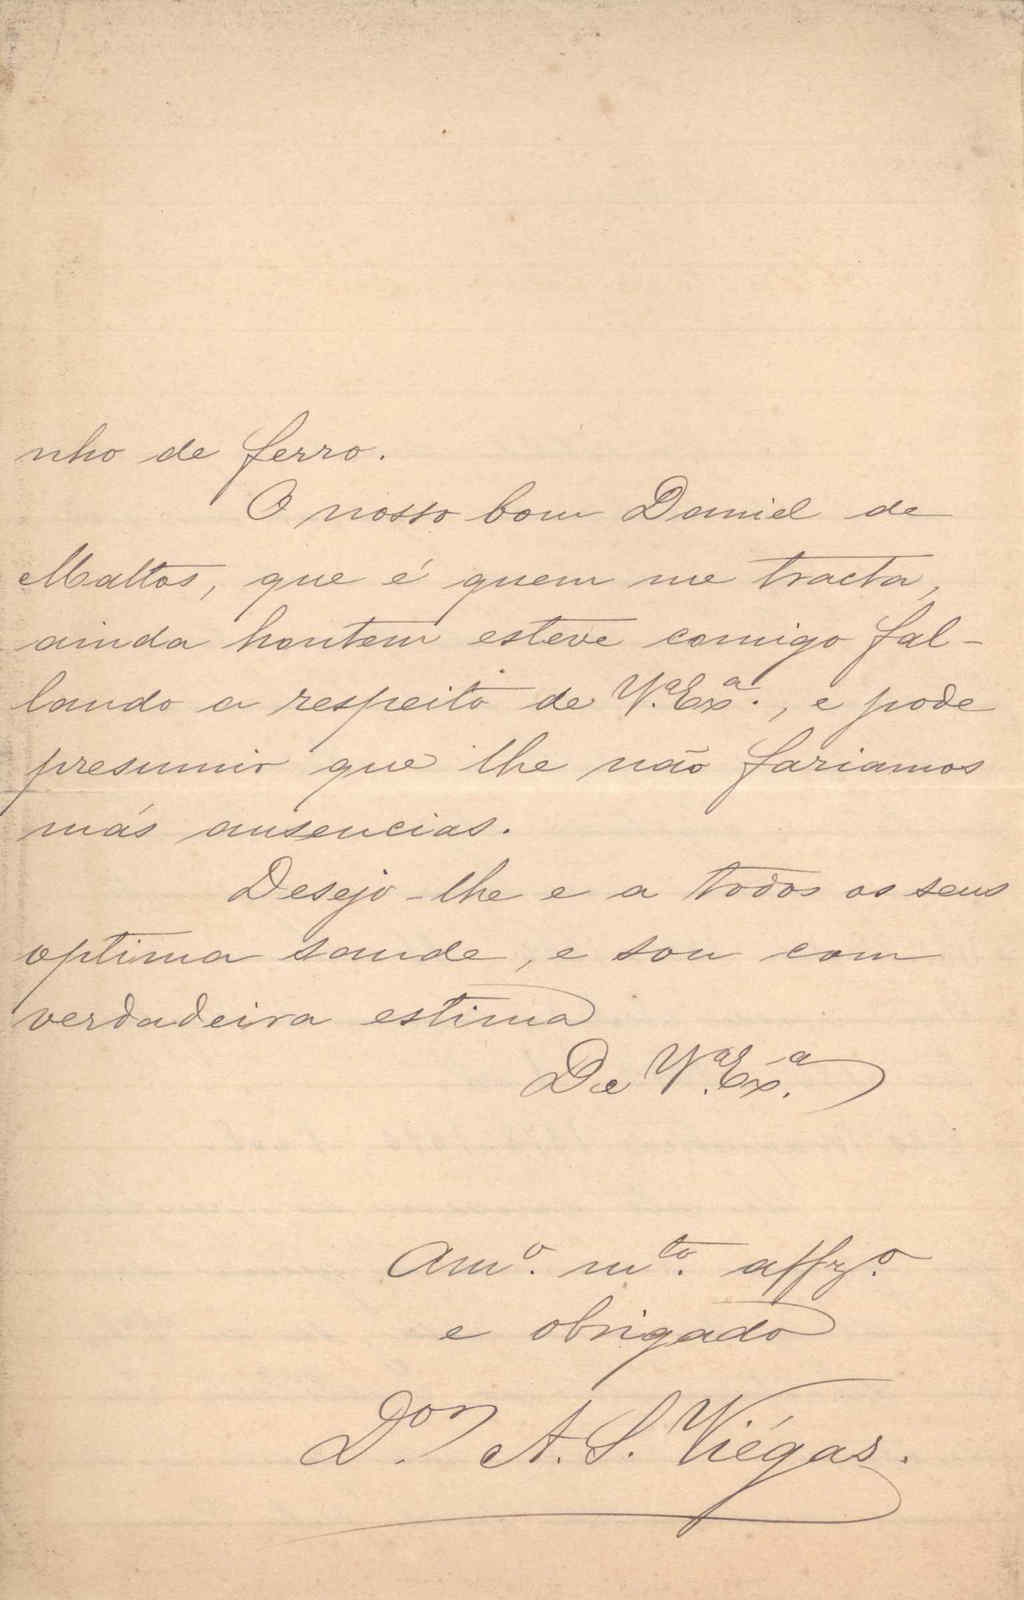 nho de ferro.
O nosso bom Daniel de
Mattos, que é quem me tracta,
ainda hontem esteve comigo fal-
lando a respeito de V.ª Ex.ª, e pode
presumir que lhe não fariamos
más ausencias.
Desejo-lhe e a todos os seus
optima saude, e sou com
verdadeira estima
De V.ª Ex.ª
Am.º m.to affz.º
e obrigado
D.or A. S. Viégas.